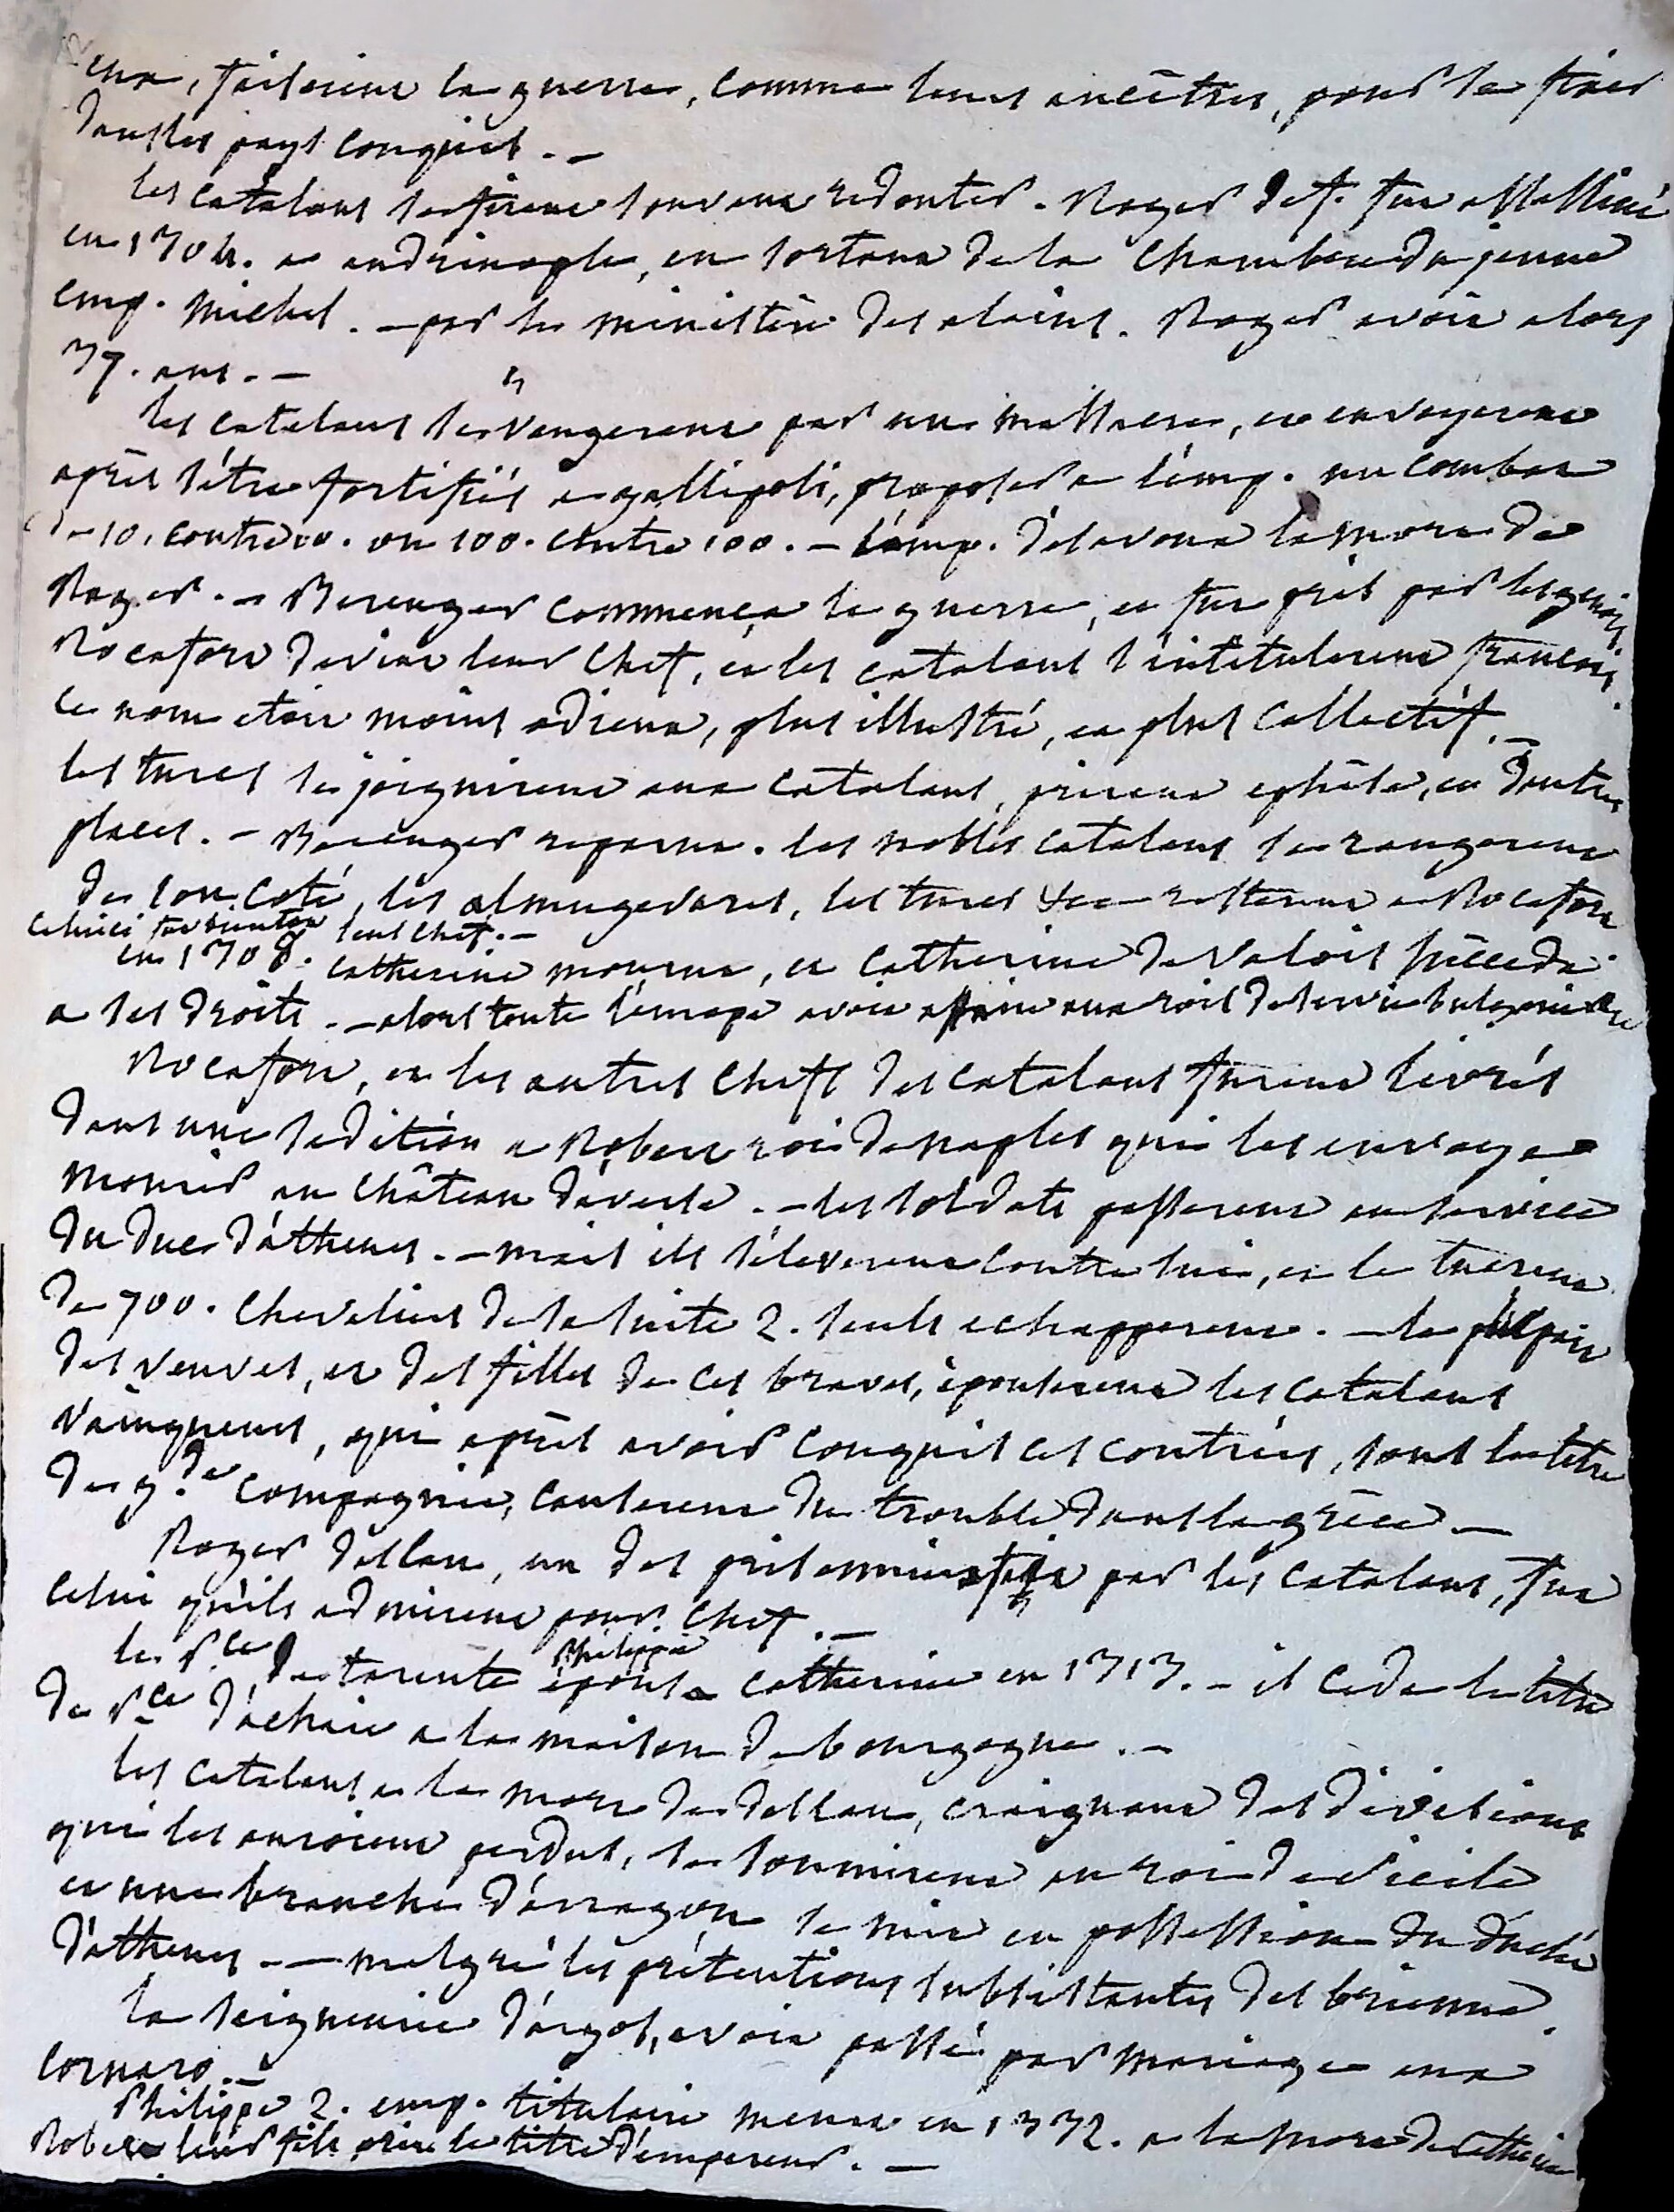 eux, faisoient la guerre, comme leurs ancêtres, pour se fixer
dans les pays conquis. —
les catalans se firent souvent redouter. Roger de f. fut assassiné
en 1304. a andrinople, en sortant de la chambre du jeune
emp. michel. — par le ministère des alains. Roger avoit alors
37. ans. —
les catalans se vengerent par un massacre, et envoyerent
après s'être fortifiés a gallipoli, proposer a l'emp. un combat
de 10. contre 10. ou 100. contre 100. — l'emp. désavoua la mort de
Roger. — Berenger commença la guerre, et fut pris par les genois
Rocafort devint leur chef, et les catalans s'intitulerent francois.
ce nom etoit moins odieux, plus illustré, et plus collectif. —
les turcs se joignirent aux catalans, prirent ephèse, et d'autres
places. — Berenger reparut. les nobles catalans se rangerent
de son coté, les almugavares, les turcs &c. resterent a Rocafort
celui ci fut bientôt seul chef. —
en 1308. catherine mourut, et catherine de valois succéda
a ses droits. — alors toute l'europe avoit affaire aux rois de servie bulgarie &c
Rocafort, et les autres chefs des catalans furent livrés
dans une sedition a Robert roi de naples qui les envoya
mourir au château d'averse. — les soldats passerent au service
du duc d'athenes. — mais ils s'éleverent contre lui, et le tuerent
de 700. chevaliers de sa suite 2. seuls echapperent. — la plupart
des veuves, et des filles de ces braves, épouserent les catalans
vainqueurs, qui après avoir conquis ces contrées, sous le titre
de g.de compagnie, causerent du trouble dans la grèce —
Roger deslau, un des prisonniers faits par les catalans, fut
celui qu'ils admirent pour chef. —
le P.ce Philippe de tarente épousa catherine en 1313. — il ceda le titre
de P.ce d'achaie a la maison de bourgogne. —
les catalans a la mort de deslau, craignant des divisions
qui les auroient perdus, se soumirent au roi de sicile
et une branche d'arragon se mit en possession du duché
d'athenes. — malgré les prétentions subsistantes des brienne.
la seigneurie d'argos, avoit passé par mariage aux
cornaro. —
Philippe 2. emp. titulaire meurt en 1332. a la mort de catherine
Robert leur fils prit le titre d'empereur. —